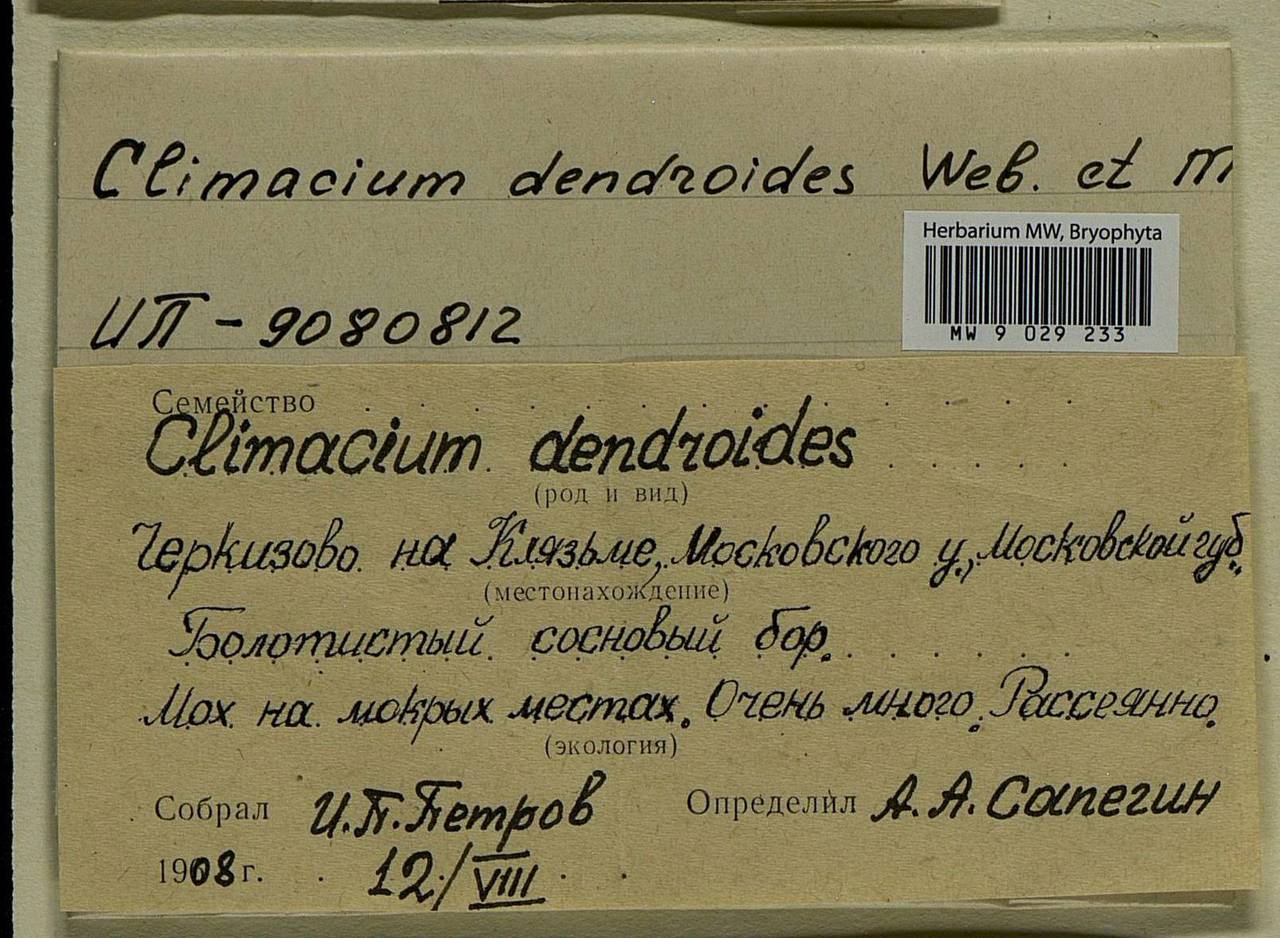 Climacium dendroides Web. et M
Herbarium MW, Bryophyta
MW 9 029 233
ИП - 9080812
Семейство
Climacium dendroides
(род и вид)
Черкизово на Клязьме, Московского у., Московской губ.
(местонахождение)
Болотистый сосновый бор.
Мох на мокрых местах. Очень много. Рассеянно.
(экология)
Собрал И.П.Петров Определил А.А.Сапегин
1908 г. 12/VIII